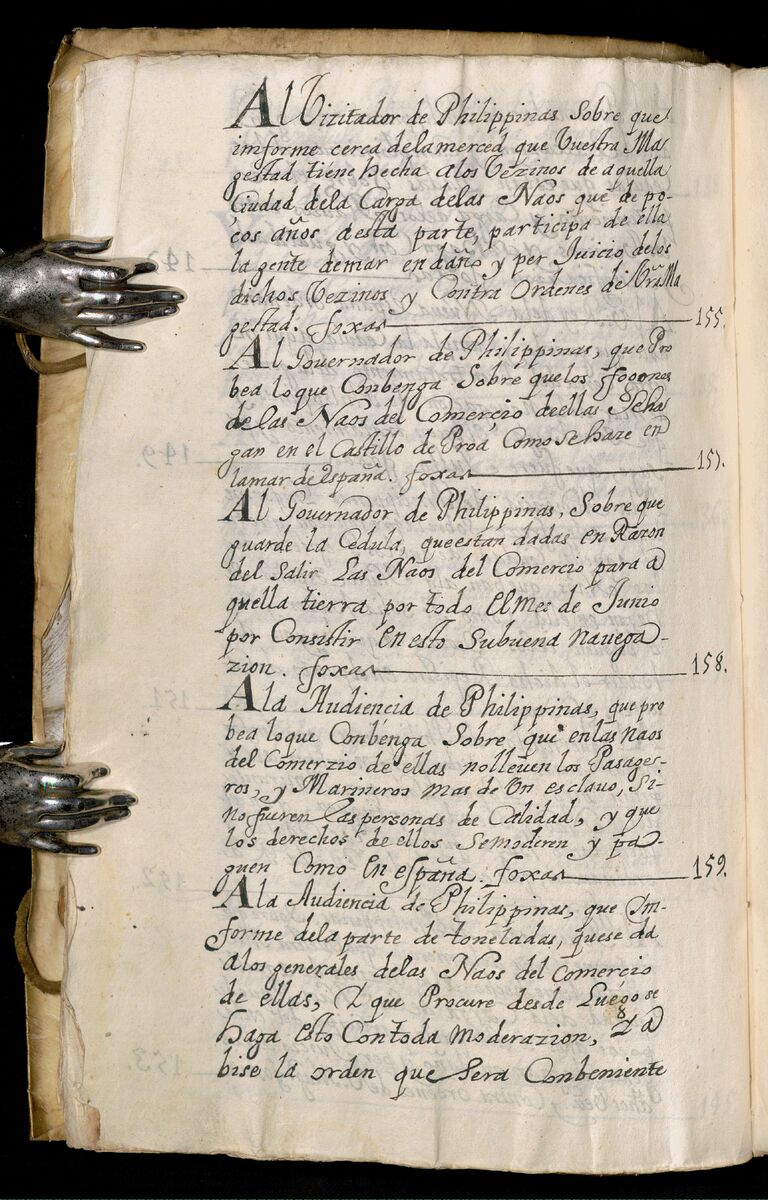 Al Vizitador de Philippinas Sobre que
imforme cerca delamerced que Vuestra Ma
gestad tiene hecha alos Vezinos de aquella
Ciudad dela Carga delas Naos que de po-
cos años desta parte, participa de ella
la gente demar endaño y per Juicio delos
dichos Vezinos y Contra Ordenes de Vrã Ma
gestad. foxas 155.
Al Gouernador de Philippinas, que Pro
bea loque Conbenga Sobre quelos fogones
de las Naos del Comercio deellas Seha
gan en el Castillo de Proa Como Sehaze en
lamar de españa. foxas 157.
Al Gouernador de Philippinas, Sobre que
guarde la Cedula, queestan dadas en Razon
del Salir Las Naos del Comercio para a
quella tierra por todo Elmes de Junio
por Consistir Enesto Subuena nauega-
zion. foxas 158.
Ala Audiencia de Philippinas, que pro
bea loque Conbenga Sobre que enlas naos
del Comerzio de ellas nolleuen los Pasage-
ros, y Marineros mas de Un esclauo, Si-
nofueren las personas de Calidad, y que
los derechos de ellos Semoderen y pa-
guen Como en españa. foxas 159.
Ala Audiencia de Philippinas, que Im-
forme dela parte de toneladas, quese da
alos generales delas Naos del Comercio
de ellas, Y que Procure desde Luego se
haga esto Contoda moderazion, Y a
bise la orden que Sera Conbeniente